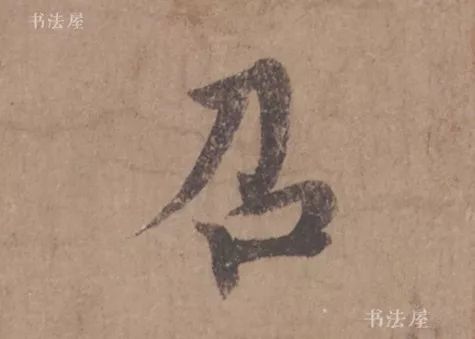 书法屋
召
书法屋